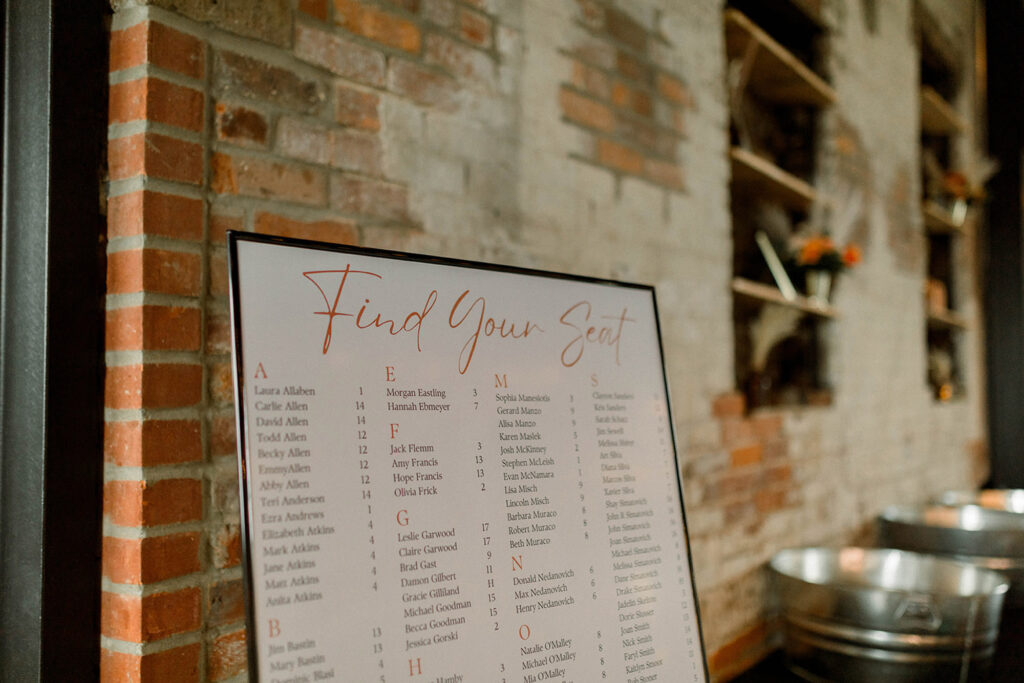 Find Your Seat
A
Laura Allaben 1
Carlie Allen 14
David Allen 14
Todd Allen 12
Becky Allen 12
EmmyAllen 12
Abby Allen 12
Teri Anderson 14
Ezra Andrews 1
Elizabeth Atkins 4
Mark Atkins 4
Jane Atkins 4
Matt Atkins 4
Anita Atkins 4
B
Jim Bastin 13
Mary Bastin 13
Dominic Blasi
E
Morgan Eastling 3
Hannah Ebmeyer 7
F
Jack Flemm 3
Amy Francis 13
Hope Francis 13
Olivia Frick 2
G
Leslie Garwood 17
Claire Garwood 17
Brad Gast 9
Damon Gilbert 11
Gracie Gilliland H
Michael Goodman 15
Becca Goodman 15
Jessica Gorski 2
H
Hamby 3
M
Sophia Manesiotis 3
Gerard Manzo 9
Alisa Manzo 9
Karen Maslek 5
Josh McKinney 2
Stephen McLeish 1
Evan McNamara 1
Lisa Misch 9
Lincoln Misch 9
Barbara Muraco 8
Robert Muraco 8
Beth Muraco 8
N
Donald Nedanovich 6
Max Nedanovich 6
Henry Nedanovich 6
O
Natalie O'Malley 8
Michael O'Malley 8
Mia O'Malley 8
S
Clayton Sanders
Kris Sanders
Sarah Schatz
Jim Sewell
Melissa
Art Silva
Diana Silva
Marcos Silva
Xavier Silva
Shay Simatovich
John R. Simatovich
John Simatovich
Joan Simatovich
Michael Simatovich
Melissa Simatovich
Dane Simatovich
Drake Simatovich
Jadelin Skelton
Dorie Slusser
Joan Smith
Nick Smith
Faryl Smith
Kaitlyn Smoor
Rob Stoner